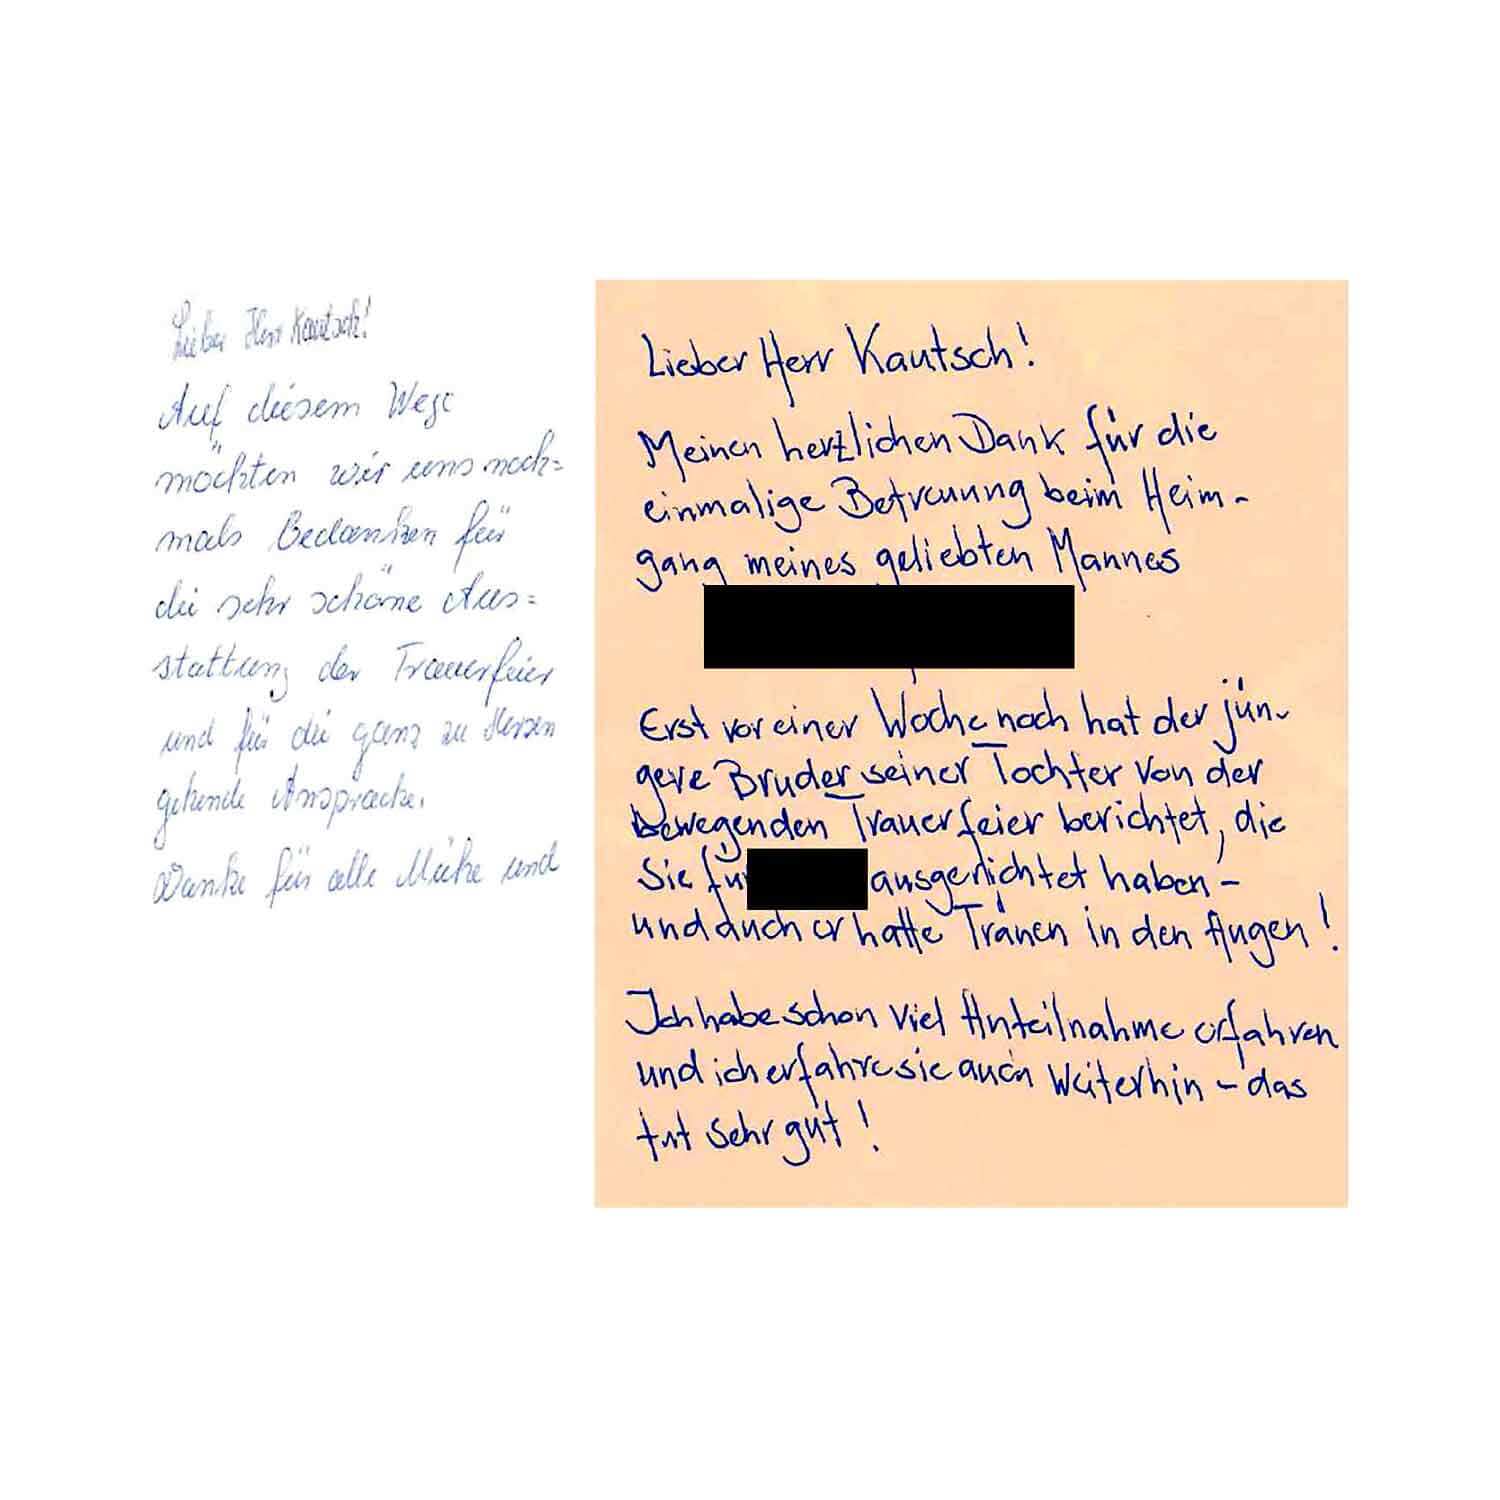 Lieber Herr Kautsch!
Auf diesem Wege
möchten wir uns noch=
mals Bedanken für
die sehr schöne Aus=
stattung der Trauerfeier
und für die ganz zu Herzen
gehende Ansprache.
Danke für alle Mühe und
Lieber Herr Kautsch!
Meinen herzlichen Dank für die
einmalige Betreuung beim Heim-
gang meines geliebten Mannes
Erst vor einer Woche noch hat der jün-
gere Bruder seiner Tochter von der
bewegenden Trauerfeier berichtet, die
Sie für ausgerichtet haben -
und auch er hatte Tränen in den Augen!
Ich habe schon viel Anteilnahme erfahren
und ich erfahre sie auch weiterhin - das
tut sehr gut!